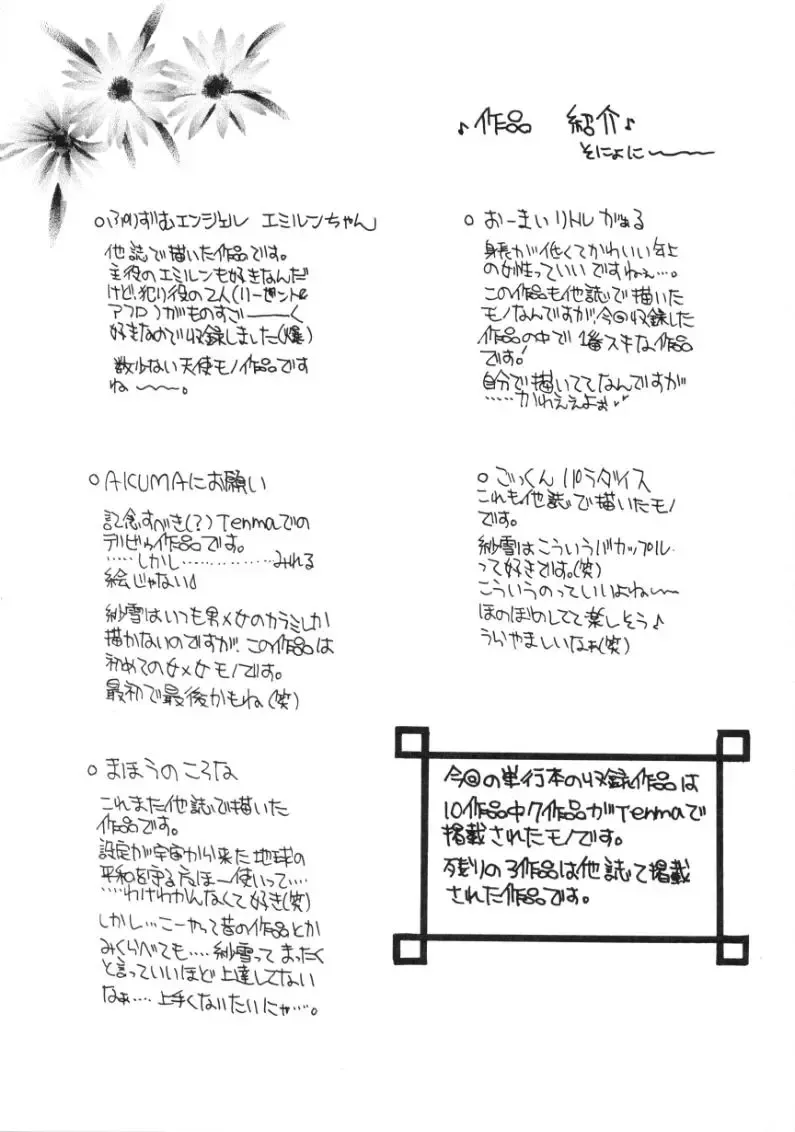 ♪作品 紹介♪
そにょに〜〜
○ぷりずむエンジェル エミルンちゃん
他誌で描いた作品です。
主役のエミルンも好きなんだ
けど、犯り役の2人(リーゼントと
アフロ)がものすごーーーく
好きなので収録しました(爆)
数少ない天使モノ作品です
ね〜〜。
○AKUMAにお願い
記念すべき(?)Tenmaでの
デビゥ作品です。
……しかし……………みれる
絵じゃない
紗雪はいつも男×女のカラミしか
描かないのですが、この作品は
初めての女×女モノです。
最初で最後かもね(笑)
○まほうのころな
これまた他誌で描いた
作品です。
設定が宇宙から来た地球の
平和を守るまほー使いって……
……わけわかんなくて好き(笑)
しかし…こーやって昔の作品とか
みくらべても……紗雪ってまったく
と言っていいほど上達してない
なぁ……上手くなりたいにゃ……。
○おーまいリトルがぁる
身長が低くてかわいい年上
の女性っていいですねぇ…。
この作品も他誌で描いた
モノなんですが、今回収録した
作品の中で1番スキな作品
です!
自分で描いててなんですが
……かわええよぉ
○ごっくんパラダイス
これも他誌で描いたモノ
です。
紗雪はこういうバカップル
って好きです。(笑)
こういうのっていいよね〜〜
ほのぼのしてて楽しそう♪
うらやましいなぁ(笑)
今回の単行本の収録作品は
10作品中7作品がTenmaで
掲載されたモノです。
残りの3作品は他誌で掲載
された作品です。